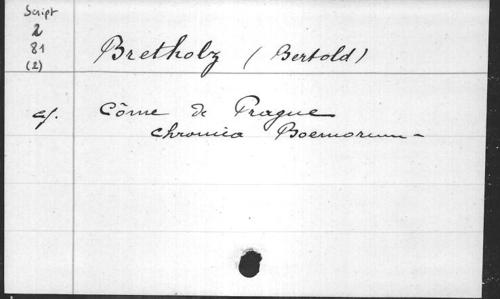 Script
2
81
(2)
Bretholz (Bertold)
cf. Côme de Prague
Chronica Boemorum -